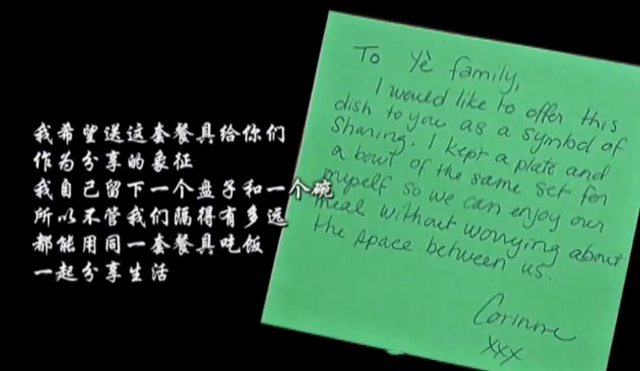 我希望送这套餐具给你们
作为分享的象征
我自己留下一个盘子和一个碗
所以不管我们隔得有多远
都能用同一套餐具吃饭
一起分享生活
To Yè family,
I would like to offer this
dish to you as a symbol of
sharing. I kept a plate and
a bowl of the same set for
myself so we can enjoy our
meal without worrying about
the space between us.
Corinne
xxx